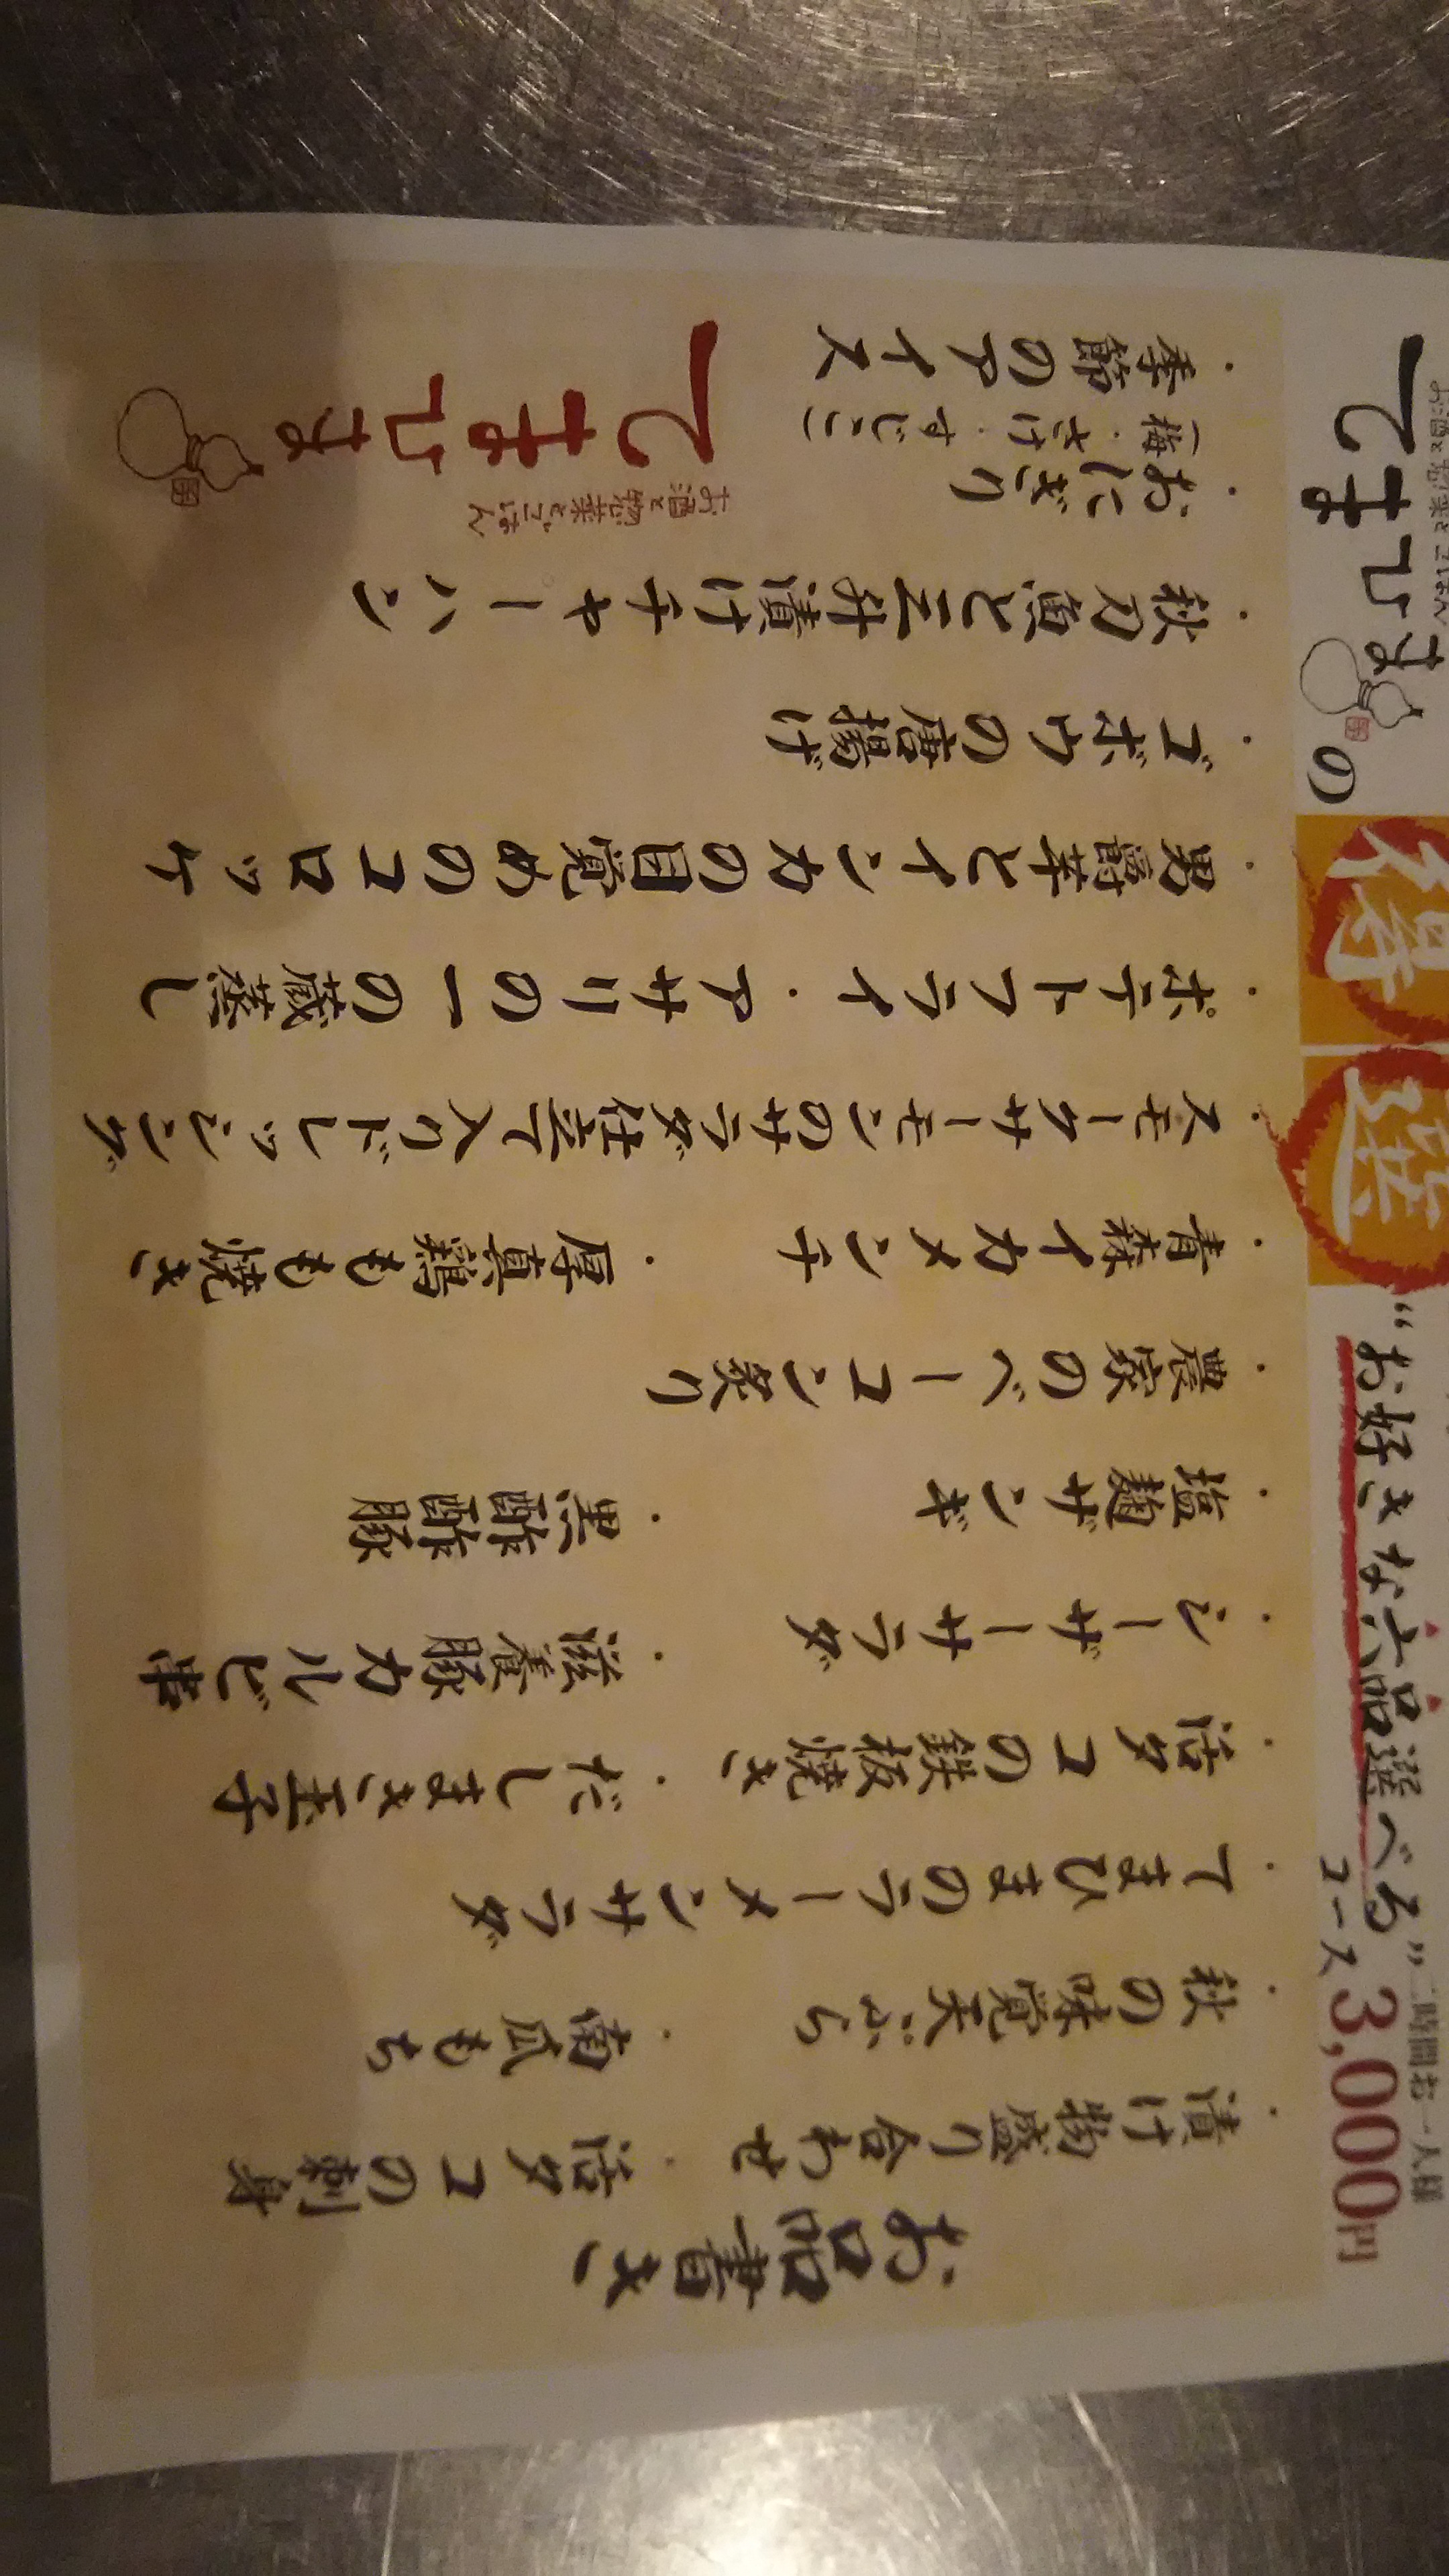 お酒と惣菜とごはん
てまひまの得選
“お好きな六品選べる”コース
二時間お一人様
3,000円
お品書き
・漬け物盛り合わせ ・活タコの刺身
・秋の味覚天ぷら ・南瓜もち
・てまひまのラーメンサラダ
・活タコの鉄板焼き ・だしまき玉子
・シーザーサラダ ・滋養豚カルビ串
・塩麹ザンギ ・黒酢酢豚
・農家のベーコン炙り
・青森イカメンチ ・厚真鶏もも焼き
・スモークサーモンのサラダ仕立て入りドレッシング
・ポテトフライ ・アサリの一の蔵蒸し
・男爵芋とインカの目覚めのコロッケ
・ゴボウの唐揚げ
・秋刀魚と三升漬けチャーハン
・おにぎり
(梅・さけ・すじこ)
・季節のアイス
お酒と惣菜とごはん
てまひま